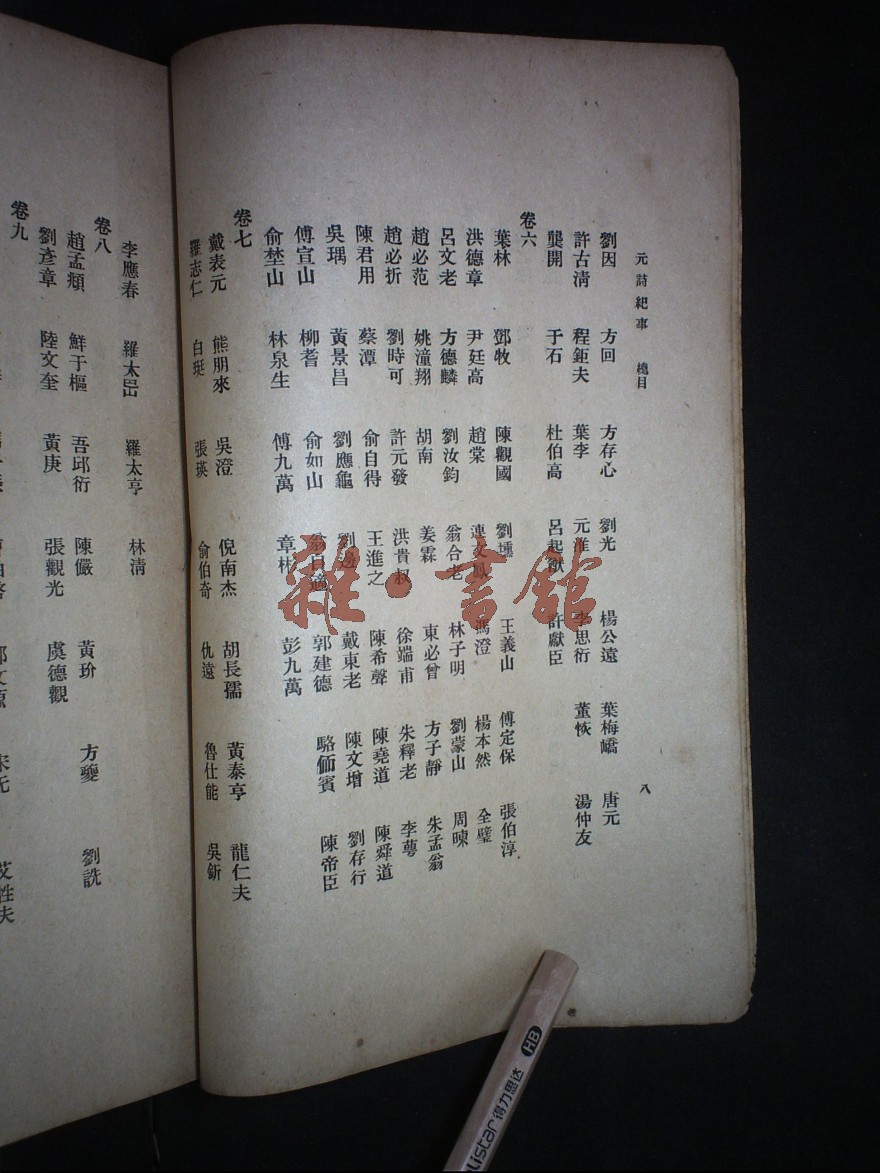 元詩紀事 總目 八
劉因 方回 方存心 劉光 楊公遠 葉梅嶠 唐元
許古淸 程鉅夫 葉李 元淮 李思衍 董恢 湯仲友
龔開 于石 杜伯高 呂起猷 許獻臣
卷六
葉林 鄧牧 陳觀國 劉壎 王義山 傅定保 張伯淳
洪德章 尹廷高 趙棠 連文鳳 馮澄 楊本然 全璧
呂文老 方德麟 劉汝鈞 翁合老 林子明 劉蒙山 周暕
趙必范 姚潼翔 胡南 姜霖 東必曾 方子靜 朱孟翁
趙必折 劉時可 許元發 洪貴叔 徐端甫 朱釋老 李蕚
陳君用 蔡潭 俞自得 王進之 陳希聲 陳堯道 陳舜道
吳瑀 黃景昌 劉應龜 劉邊 戴東老 陳文增 劉存行
傅宣山 柳耆 俞如山 翁自適 郭建德 駱偭賓 陳帝臣
俞埜山 林泉生 傅九萬 章林 彭九萬
卷七
戴表元 熊朋來 吳澄 倪南杰 胡長孺 黃泰亨 龍仁夫
羅志仁 白珽 張瑛 俞伯奇 仇遠 魯仕能 吳釿
李應春 羅太瑺 羅太亨 林淸
卷八
趙孟頫 鮮于樞 吾邱衍 陳儼 黃玠 方夔 劉詵
劉彥章 陸文奎 黃庚 張觀光 虞德觀
卷九
艾性夫
雜·書館
listar 得力思达 HB